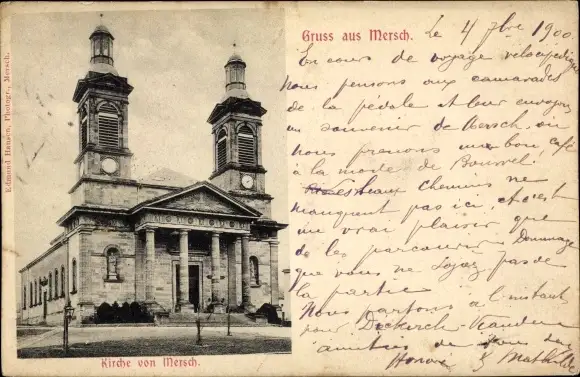 Edmond Hansen, Photogr., Mersch.
Gruss aus Mersch.
Le 4 7bre 1900
En cours de voyage vélocipédique
nous pensons aux camarades
de la pédale et leur envoyons
un souvenir de Mersch, où
nous prenons un bon café
à la mode de
beaux chemins ne
manquent pas ici, et c'est
un vrai plaisir que
de les parcourir. Dommage
que vous ne soyez pas de
la partie.
Nous partons à l'instant
pour Diekirch-Vianden
amitiés de tous deux
Honoré & Mathilde
Kirche von Mersch.